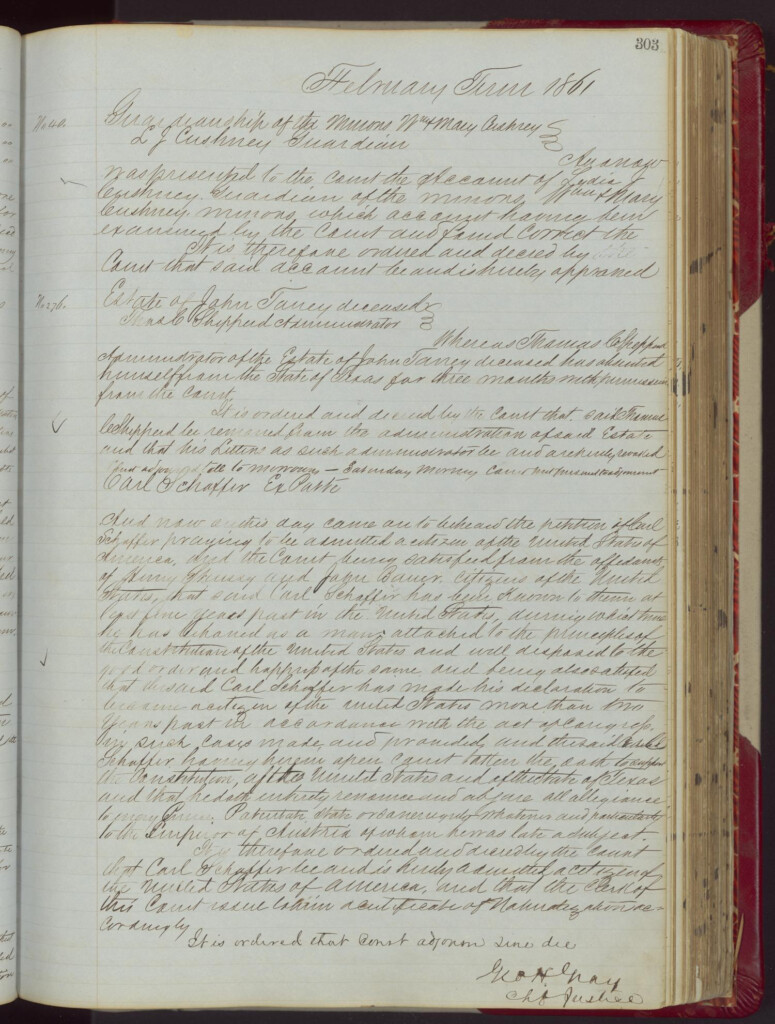 303
February Term 1861
No. 40.
Guardianship of the Minors Wm & Mary Cushney
L J Cushney Guardian
And now
was presented to the Court the Account of Lydia J
Cushney Guardian of the minors, Wm & Mary
Cushney minors, which account having been
examined by the Court and found Correct the
It is therefore ordered and decreed by
Court that said account be and is hereby approved
No. 276.
Estate of John Taney deceased
Thos C Shepperd Administrator
Whereas Thomas C Shepperd
Administrator of the Estate of John Taney deceased has absented
himself from the State of Texas for three months with permission
from the Court,
It is ordered and decreed by the Court that said Thomas
C Shepperd be removed from the administration of said Estate
and that his Letters as such administrator be and are hereby revoked
Court adjourned till to morrow — Saturday Morning Court met pursuant to adjournment
Carl Schaffer Ex Parte
And now on this day came on to be heard the petition of Carl
Schaffer praying to be admitted a citizen of the United States of
America, and the Court being satisfied from the affidavits
of Henry and John citizens of the United
States, that said Carl Schaffer has been Known to them at
least five years past in the United States, during which time
he has behaved as a man attached to the principles of
the Constitution of the United States and well disposed to the
good order and happiness of the same and being also satisfied
that the said Carl Schaffer has made his declaration to
become a citizen of the united States more than two
years past in accordance with the act of Congress,
in such cases made, and provided, and the said Carl
Schaffer having herein open Court taken the oath to support
the Constitution, of the United States and of the State of Texas
and that he doth entirely renounce and abjure all allegiance
to every Prince, Potentate State or Sovereignty whatever and particularly
to the Emperor of Austria of whom he was late a subject
It is therefore ordered and decreed by the Court
that Carl Schaffer be and is hereby admitted a citizen of
the United States of America, and that the Clerk of
this Court issue to him a certificate of Naturalization ac-
cordingly
It is ordered that Court adjourn sine die
Geo H Gray
Chf Justice